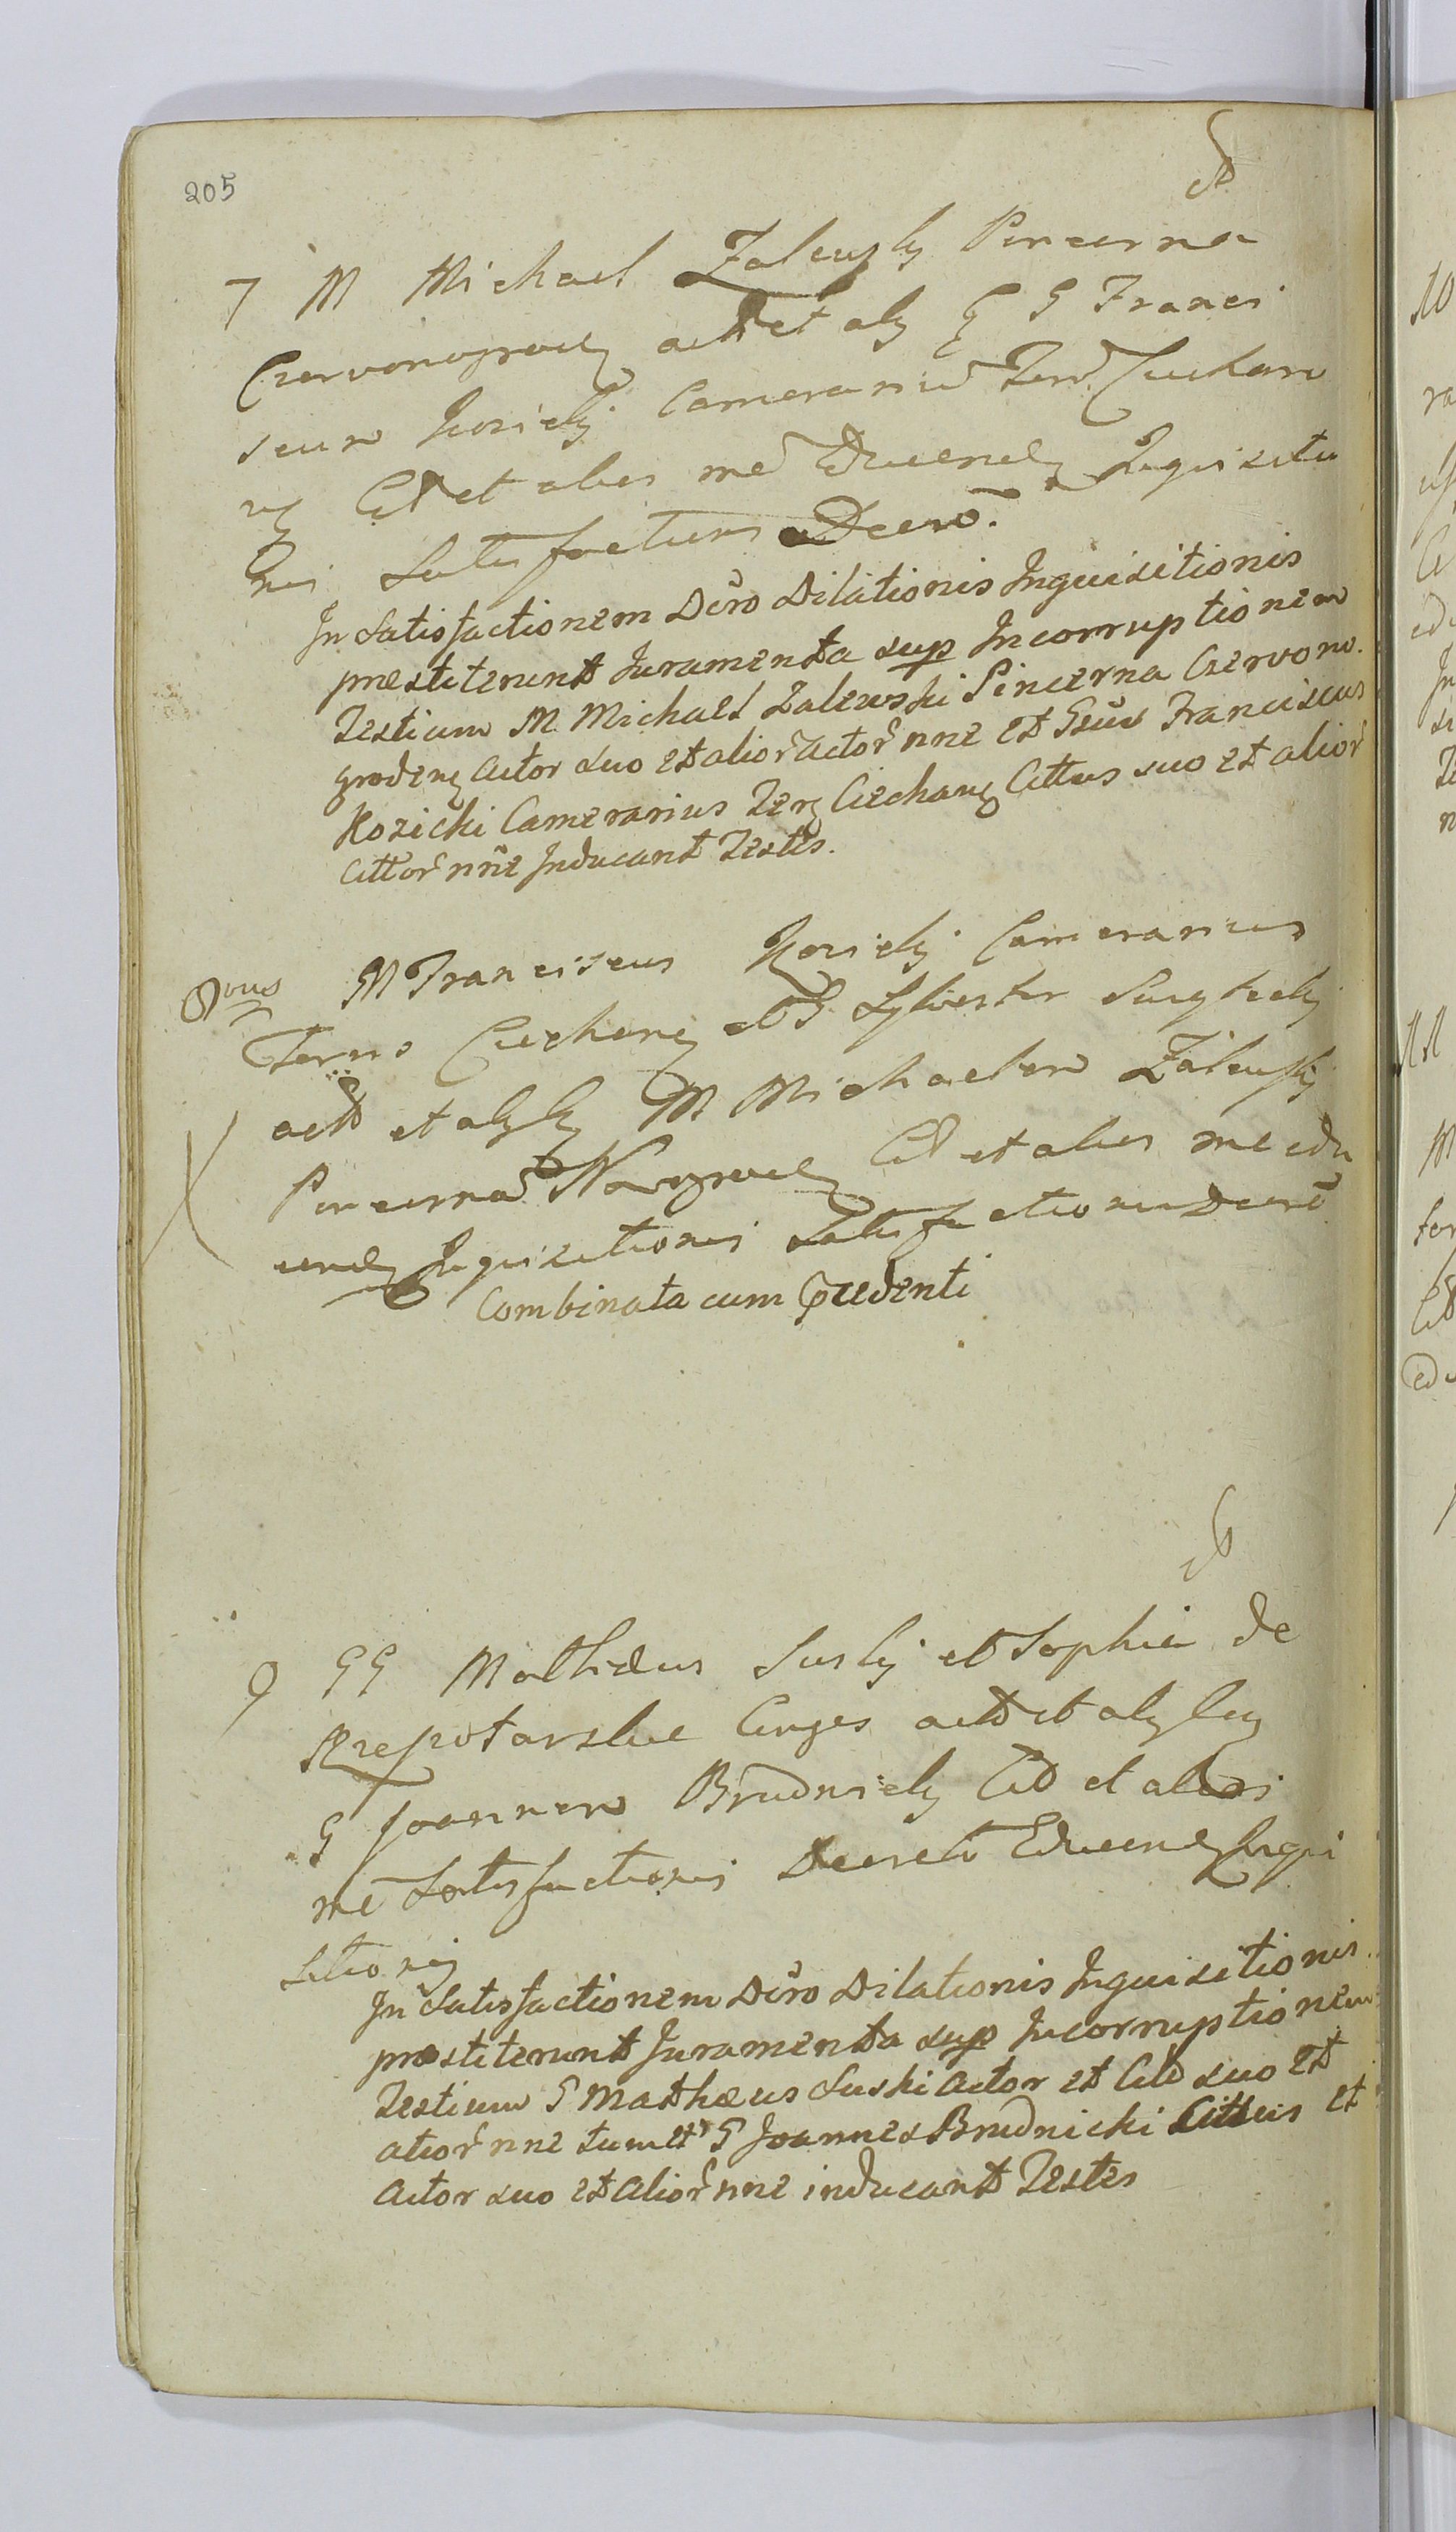 205
7 M Michael Zalewsky Pincerna
Czervonogroden actor et aly G Franci
scum Kosicki Camerariũ Terr. Ciechanv
Citt et alios me Educend Inquisitio
nis Satisfactiens Decro.
In Satisfactionem Dcro Dilationis Inquisitionis
præstiterunt Juramenta sup Incorruptionem
Testium M. Michael Zalewski Pincerna Czervono.
groden actor suo et alior actor nne et Gsus Franciscus
Kozicki Camerarius Terr Ciechan Cittus suo et alior
Citтor nñe Inducant Testes.
8vus M Franciscus Kosicki Camerarius
Terrus Ciechan et G. Sylvester
actõ et aly M Michaelem Zalewski
Pincernã et alios me edu
cend Inquisitionis Satisfactionis Decrõ
Combinata cum Præcedenti
9 GG Mathæus Suski et Sophia de
Conges actõ et aly
G Joannem Brudnicki Citõ et alios
me Satisfactionis Decreti Educend Inqui
sitionis
In Satisfactionem Dcro Dilationis Inquisitionis
præstiterunt Juramenta sup Incorruptionem
Testium G Mathæus Suski Actor et Citõ suo et
alior nne tum et G Joannes Brudnicki Cittus et
Actor suo et alior nne inducant Testes